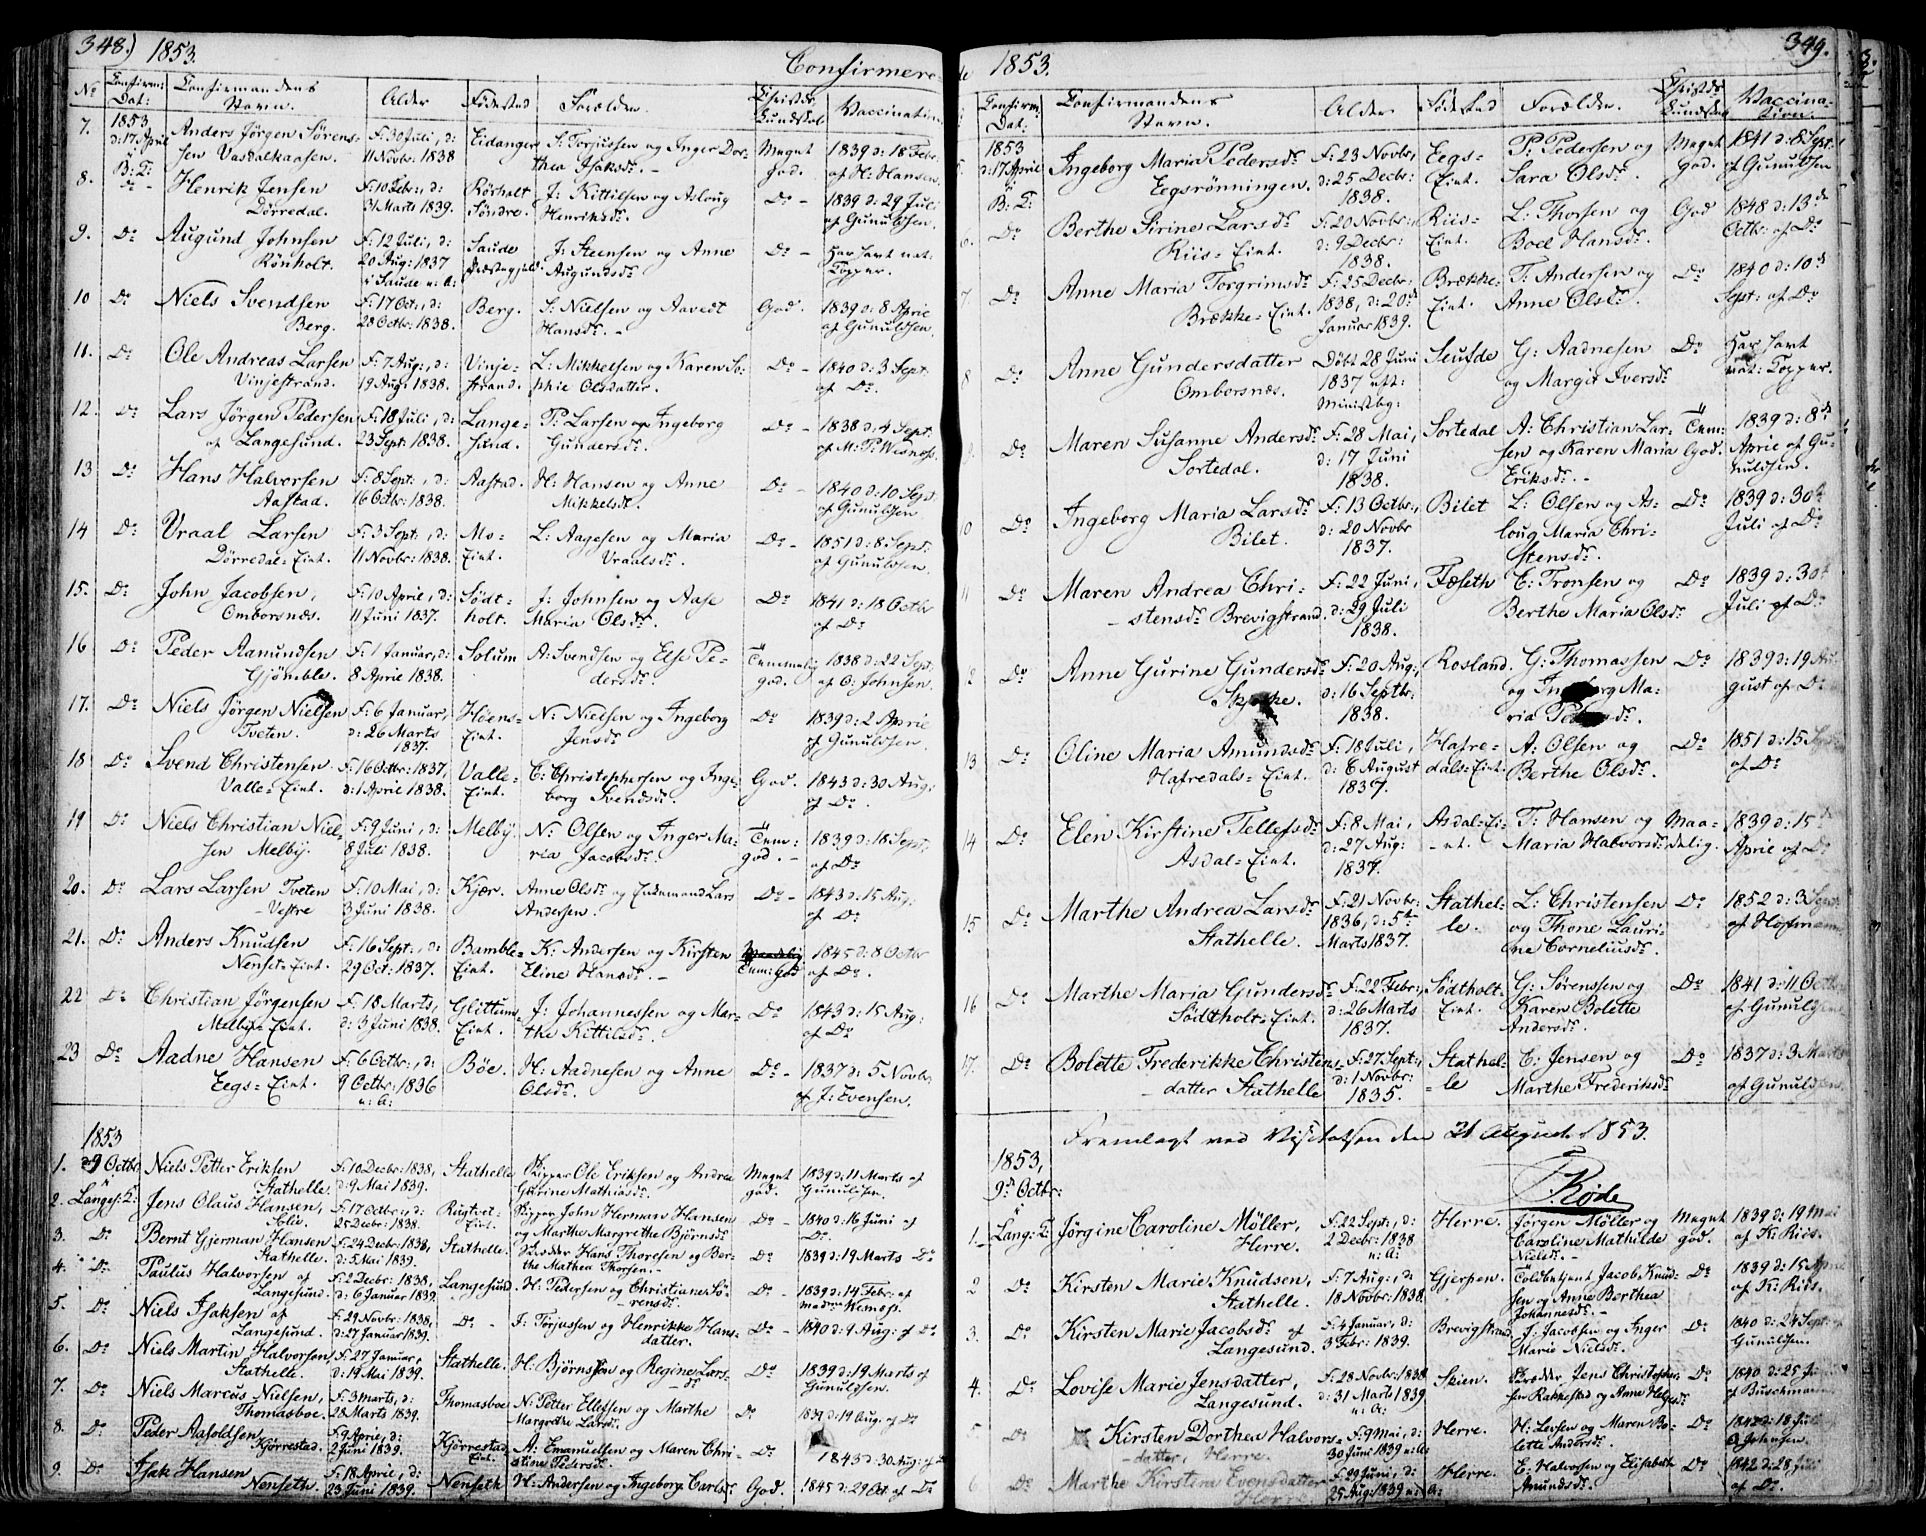 348.) 1853.
Confirmere-
No
Confirm: Dat:
Confirmandens Navn.
Alder
Födested
Forældre.
Christds: Kundskab
Vaccination
7. 1853 d: 17 April i B: K: Anders Jörgen Sörensen Vasdalkaasen. F: 30 Juli, d: 11 Novbr: 1838 Eidanger S: Torjussen og Inger Dorthea Isaksdr. - Meget god. 1839 d: 18 Febr: af H: Hansen.
8. Do - Henrik Jensen Dörredal. F: 10 Febr:, d: 31 Marts 1839. Rörholt Söndre. J: Kittilsen og Asloug Henriksdr. Do - 1839 d: 29 Juli af Gunuldsen
9. Do Augund Johnsen Rönholt. F: 12 Juli, d: 20 Aug: 1837 i Saude n: A: Saude Præstegjeld J: Steensen og Anne Augundsdr. Do - Har havt nat: Kopper.
10 Do Niels Svendsen Berg. F: 17 Oct:, d: 28 Octbr: 1838. Berg. S: Nielsen og Aavedt Hansdr. - God. 1839 d: 8 April af Gunuldsen.
11. Do Ole Andreas Larsen Vinjestrand. F: 7 Aug:, d: 19 Aug: 1838. Vinjestrand. L: Mikkelsen og Karen Sophie Olsdatter. Do - 1840 d: 3 Sept. af Do.
12. Do Lars Jörgen Pedersen af Langesund. F: 18 Juli, d: 23 Sept: 1838. Langesund. P: Larsen og Ingeborg Gundersdr. Do - 1838 d: 4 Sept: af M: P: Wisnæs.
13 Do Hans Halvorsen Aastad. F: 8 Sept:, d: 16 Octbr: 1838. Aastad. H: Hansen og Anne Mikkelsdr. Do - 1840 d: 10 Sept: af Gunuldsen
14 Do Vraal Larsen Dörredal-Eiet. F: 3 Sept:, d: 11 Novbr: 1838. Mo-Eiet. L: Aagesen og Maria Vraalsdr. Do - 1851 d: 8 Sept: af Gunuldsen.
15. Do John Jacobsen, Omborsnæs. F: 10 April, d: 11 Juni 1837. Södtholt. J: Johnsen og Aase Maria Olsdr. Do 1841 d: 18 Octbr af Do
16 Do Peder Aamundsen Gjömble. F: 1 Januar, d: 8 April 1838. Solum A: Svendsen og Else Pedersdr. Temmelig god. 1838 d: 22 Sept: af O: Johnsen.
17. Do Niels Jörgen Nielsen Tveten. F: 6 Januar, d: 26 Marts 1837. Höens-Eiet. N: Nielsen og Ingeborg Jensdr. Do 1839 d: 2 April af Gunuldsen.
18 Do Svend Christensen Valle-Eiet. F: 16 Octbr: 1837, d: 1 April 1838. Valle-Eiet. C: Christophersen og Ingeborg Svendsdr. God. 1843 d: 30 Aug: af Do.
19 Do Niels Christian Nielsen Melby. F: 9 Juni, d: 8 Juli 1838. Melby. N: Olsen og Inger Maria Jacobsdr. Tem: god. - 1839 d: 18 Sept: af Do
20. Do Lars Larsen Tveten Vestre F: 10 Mai, d: 3 Juni 1838. Kjær. Anne Olsdr. og Enkemand Lars Andersen. Do - 1843 d: 15 Aug: af Do.
21. Do Anders Knudsen Nenset-Eiet. F: 16 Sept:, d: 29 Oct: 1837. Bamble-Eiet. K: Andersen og Kirsten Eline Hansdr. - Maadelig Tem: God 1845 d: 8 Octbr af Do.
22 Do Christian Jörgensen Melby-Eiet. F: 18 Marts, d: 3 Juni 1838. Glittums-Eiet. J: Johannessen og Marthe Kittilsdr. Do 1843 d: 15 Aug: af Do
23 Do Aadne Hansen Eegs-Eiet. F: 6 Octbr:, d: 9 Octbr: 1836 n: A: Böe. H: Aadnesen og Anne Olsdr. Do - 1837 d: 5 Novbr: af J: Evensen.
1853
1. d 9 Octbr: i Langes: K: Niels Petter Eriksen Stathelle. F: 10 Decbr: 1838, d: 9 Mai 1839. Stathelle Skipper Ole Eriksen og Andrea Gurine Mathiasdr. Meget god. 1839 d: 11 Marts af Gunuldsen.
2. Jens Olaus Hansen, F: 17 Octbr:, d: 25 Decbr: 1838. Rugtvet-Eiet. Skipper John Herman Hansen og Marthe Margrethe Björnsdr. Do - 1840 d: 16 Juni af Do.
3. Do Bernt Gjerman Hansen Stathelle. F: 24 Decbr: 1838, d: 5 Mai 1839. Stathelle. Hans Thoresen og Berthe Mathea Thorsen. - Do 1839 d: 19 Marts Do
4. Do Paulus Halvorsen af Langesund. F: 2 Decbr: 1838, d: 6 Januar 1839 Langesund. H: Pedersen og Christiane Sörensdr. Do - 1839 d: 14 Febr: af
5. Do Niels Isaksen af Langesund. F: 29 Novbr: 1838, d: 27 Januar 1839. Do - I: Torjussen og Henrikke Hansdatter. Do - 1840 d: 4 Aug: af Do
6. Do Niels Martin Halvorsen, Stathelle. F: 27 Januar, d: 19 Mai 1839. Stathelle. H: Björnsen og Regine Larsdr. Do 1839 d: 19 Marts af Gunuldsen.
7. Do Niels Marcus Nielsen, Thomasboe. F: 3 Marts, d: 28 Marts 1839. Thomasboe N: Petter Ellefsen og Marthe Margrethe Larsdr. Do 1839 d: 19 Aug. af Do
8. Do Peder Aasoldsen, Kjörrestad. F: 9 April, d: 2 Juni 1839. Kjörrestad Eiet. A: Emanuelsen og Maren Christine Pedersdr. Do 1843 d: 30 Aug: af
9. Do Isak Hansen Nenseth. F: 18 April, d: 23 Juni 1839. Nenseth H: Andersen og Ingeborg Carlsdr. God. 1845 d: 29 Oct: af Do
de 1853.
349.
Confirm: Dat:
Confirmandens Navn.
Alder.
Födested
Forældre.
Christds: Kundskab
Vaccination.
1853 d: 17 April i B: K: Ingeborg Maria Pedersdr. Eegsrönningen. F: 23 Novbr, d: 25 Decbr: 1838. Eegs-Eiet. P: Pedersen og Sara Olsdr. Meget God. 1841 d: 8 Sept: af Gunuldsen
6. Do Berthe Sirine Larsdr. Riis-Eiet. F: 20 Novbr:, d: 9 Decbr: 1838. Riis-Eiet. L: Thorsen og Boel Hansdr. God 1848 d: 13de Octbr: af Do
7. Do Anne Maria Torgrimsdr. Brække-Eiet. F: 25 Decbr: 1838, d: 20de Januar 1839. Brække-Eiet. T: Andersen og Anne Olsdr. Do 1840 d: 10de Sept: af Do
8 Do Anne Gundersdatter Omborsnæs. Döbt 28 Juni 1837 eft: Ministbg: Seufde G: Aadnesen og Margit Iversdr. Do Har havt nat: Kopper.
9. Do Maren Susanne Andersdr. Sortedal. F: 28 Mai, d: 17 Juni 1838. Sortedal A: Christian Larsen og Karen Maria Eriksdr. - Tem: God. 1839 d: 8de April af Gunuldsen.
10 Do Ingeborg Maria Larsdr. Bilet. F: 13 Octbr:, d: 20 Novbr 1837. Bilet L: Olsen og Asloug Maria Christensdr. Do 1839 d: 30te Juli af Do
11 Do Maren Andrea Christensdr. Brevigstrand. F: 22 Juni, d: 29 Juli 1838. Fæseth C: Tronsen og Berthe Maria Olsdr. Do 1839 d: 30te Juli af Do
12 Do Anne Gurine Gundersdr. F: 20 Aug:, d: 16 Septbr: 1838. Rosland. G: Thomassen og Ingeborg Maria Pedersdr. Do 1839 d: 19 August af Do
13 Do Oline Maria Amundsdr. Hafredals-Eiet. F: 18 Juli, d: 6 August 1837. Hafredals-Eiet A: Olsen og Berthe Olsdr. Do 1851 d: 15 Sept: af Do
14 Do Elen Kirstine Tellefsdr. Asdal-Eiet. F: 8 Mai, d: 27 Aug: 1837. Asdal-Eiet. T: Hansen og Maria Halvorsdr. Maadelig. 1839 d: 15de April af Do
15 Do Marthe Andrea Larsdr. Stathelle. F: 21 Novbr: 1836, d: 5te Marts 1837. Stathelle. L: Christensen og Thone Laurine Corneliusdr. Do 1852 d: 3 Sept: af Hoffmann
16 Do Marthe Maria Gundersdr. Södtholt-Eiet. F: 22 Febr:, d: 26 Marts 1837. Södtholt-Eiet. G: Sörensen og Karen Bolette Andersdr. Do 1841 d: 11 Octbr af Gunuldsen
17. Do Bolette Frederikke Christensdatter Stathelle F: 27 Sept:, d: 1 Novbr: 1835. Stathelle C: Jensen og Marthe Frederiksdr. Do 1837 d: 3 Marts af Gunuldsen.
Fremlagt ved Visitatsen den 21 August 1853.
Kode
1853, 9de Octbr: i
1. Lang: K: Jörgine Caroline Möller, Herre. F: 22 Sept:, d: 2 Decbr: 1838 n: A: Herre. Jörgen Möller og Caroline Mathilde Nielsdr. - Meget god. 1839 d: 19 Mai af K: Riis.
2 Do Kirsten Marie Knudsen, Stathelle. F: 7 Aug:, d: 18 Novbr: 1838. Gjerpen. Toldbetjent Jacob Knudsen og Anne Berthea Johannesdr. - Do 1839 d: 15 April af K: Riis.
3. Do Kirsten Marie Jacobsdr. af Langesund. F: 4 Januar, d: 3 Febr: 1839. Brevigstrand J: Jacobsen og Inger Marie Nielsdr. Do 1840 d: 24 Sept: af Gunuldsen.
4. Do Lovise Marie Jensdatter, Langesund. F: 28 Novbr: 1838 d: 31 Marts 1839 n: A: Skien. Jens Christophersen Rakkestad og Anne Helgesdr. Do 1840 d: 25 af Buschmann
5. Do Kirsten Dorthea Halvorsdatter, Herre. F: 9 Mai, d: 30 Juni 1839 n: A: Herre. H: Levsen og Maren Bolette Andersdr. Do 1842 d: 18 Juli O Johnsen.
6. Do Marthe Kirstine Evensdatter Herre F: 29 Juni, d: 25 Aug: 1839 n: A: Herre. E: Halvorsen og Elisabeth Amundsdr. Do 1842 d: 28 af Do.